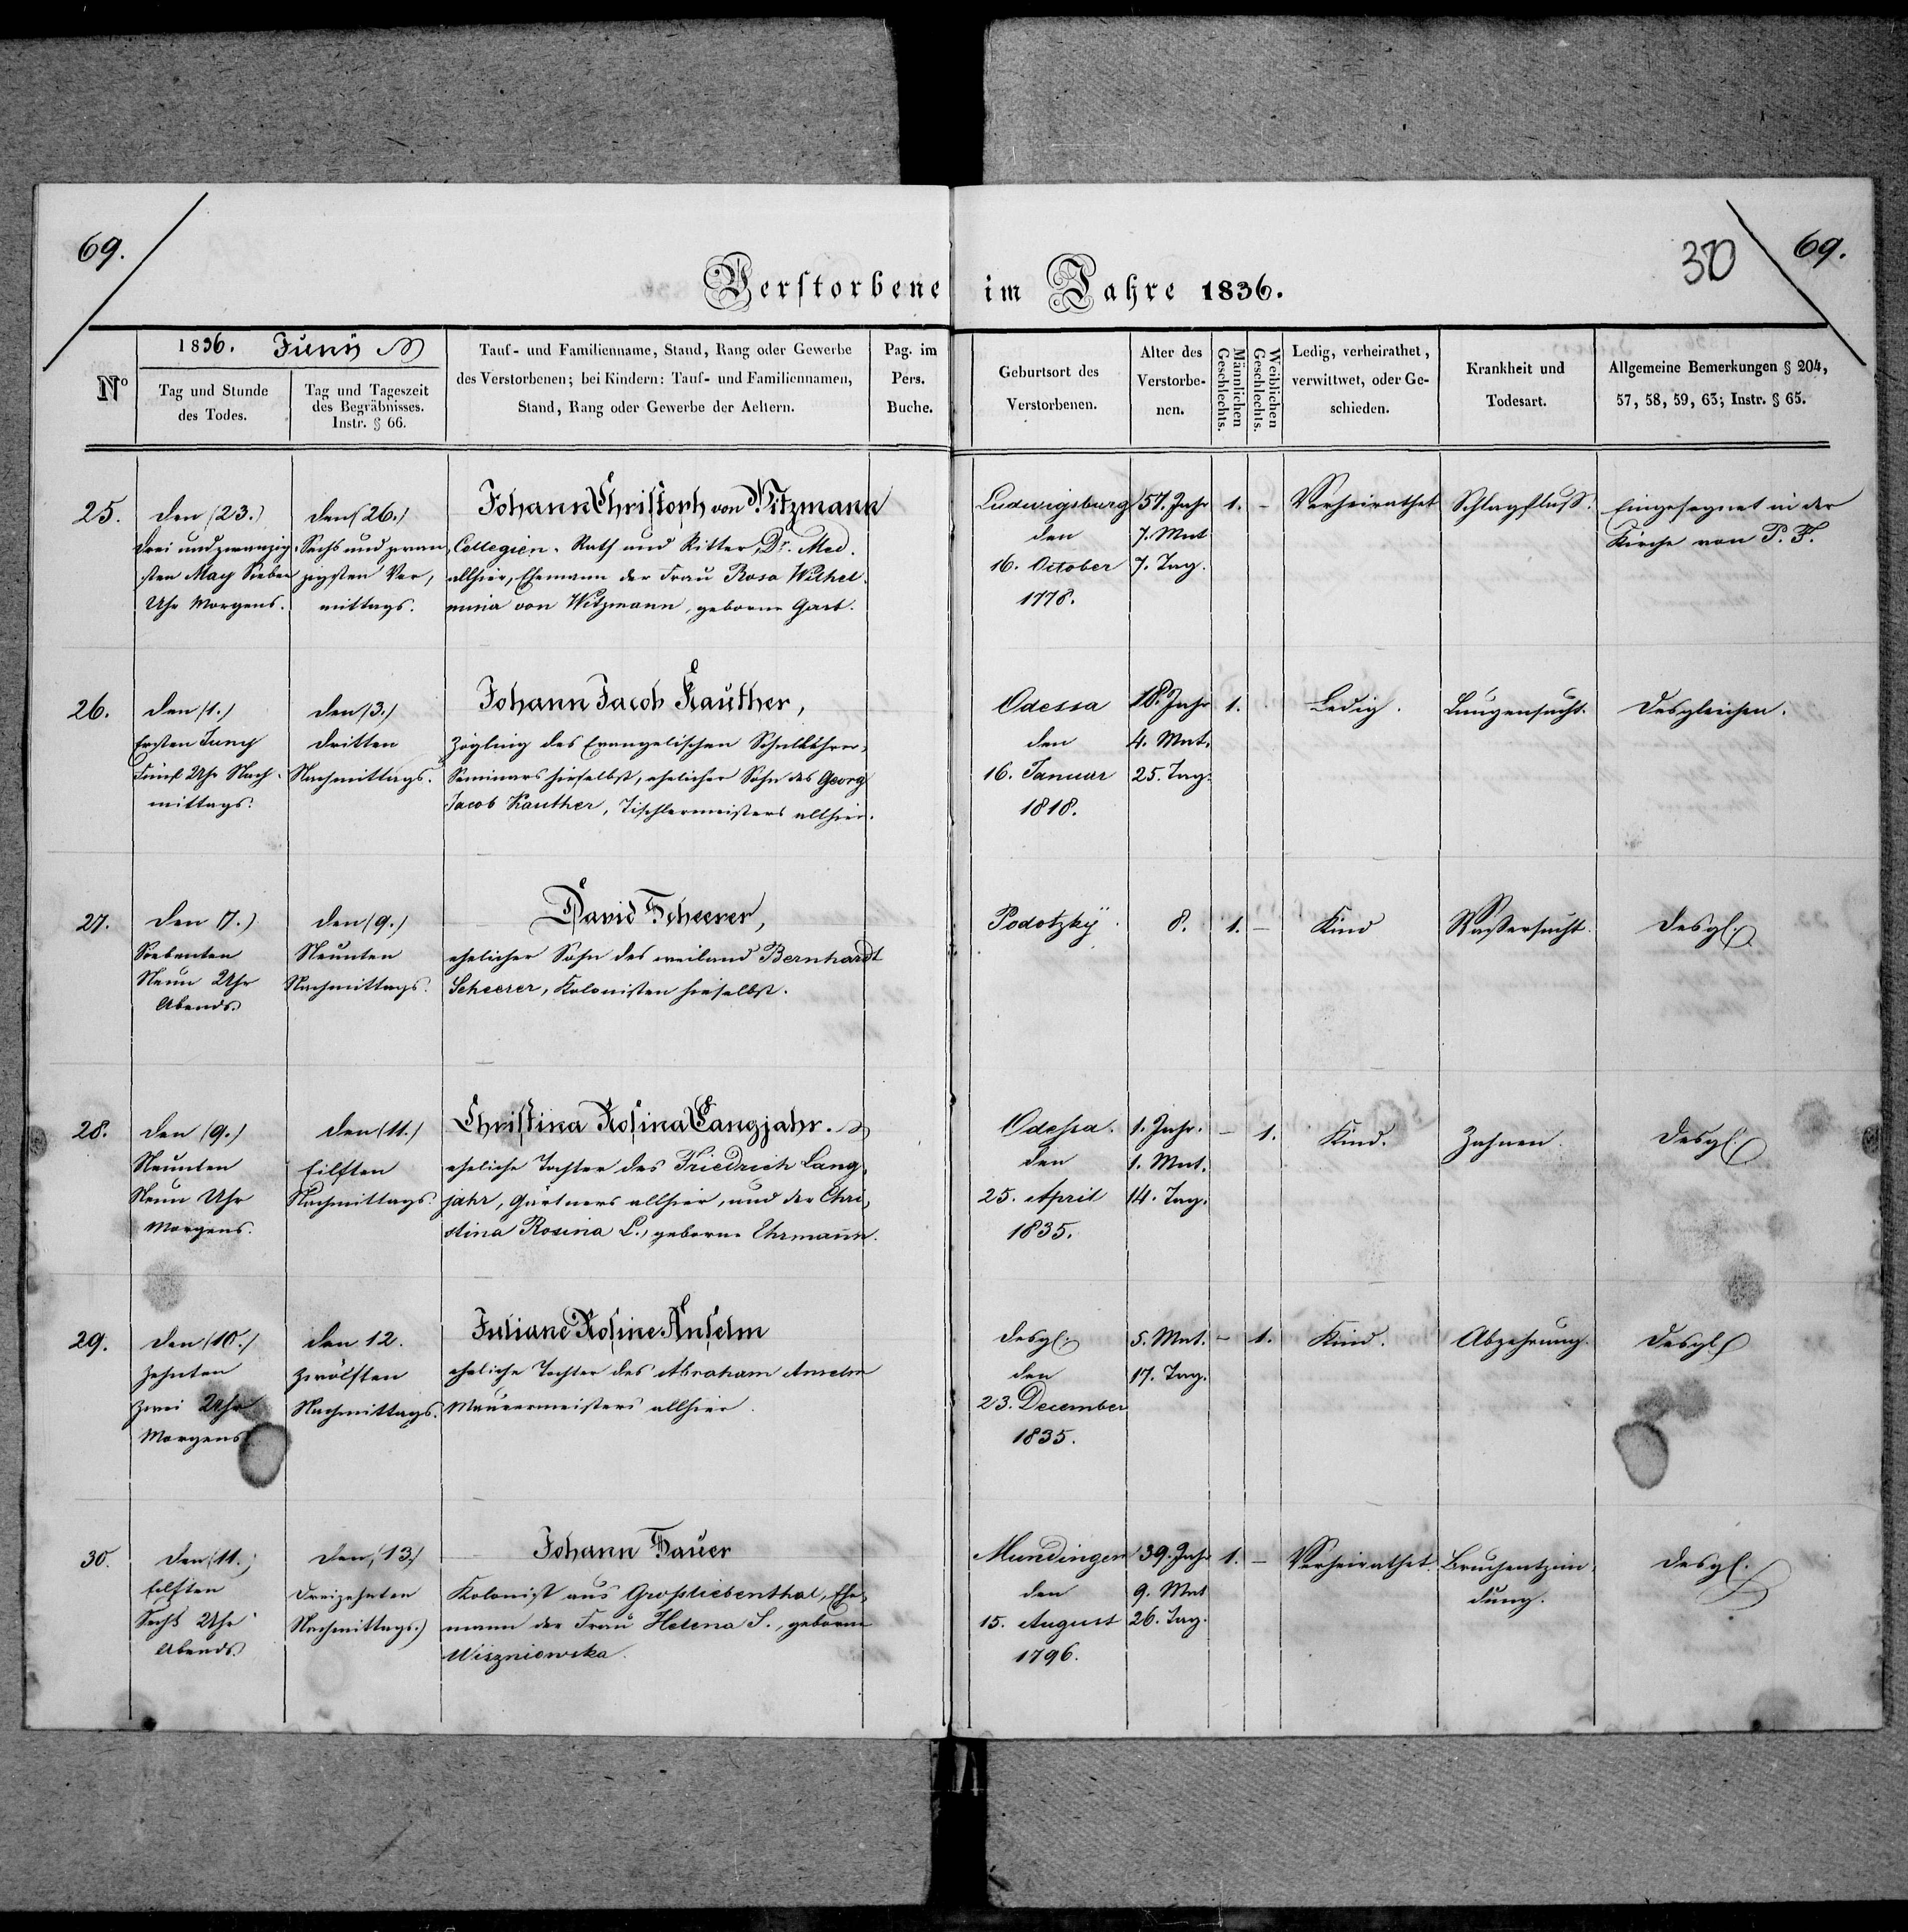 69.
30
69.
Verstorbene im Jahre 1836.
1836. Juny
Nº
Tag und Stunde
des Todes.
Tag und Tageszeit
des Begräbnisses.
Instr. § 66.
Tauf- und Familienname, Stand, Rang oder Gewerbe
des Verstorbenen; bei Kindern: Tauf- und Familiennamen,
Stand, Rang oder Gewerbe der Aeltern.
Pag. im
Pers.
Buche.
Geburtsort des
Verstorbenen.
Alter des
Verstorbe-
nen.
Männlichen
Geschlechts.
Weiblichen
Geschlechts.
Ledig, verheirathet,
verwittwet, oder Ge-
schieden.
Krankheit und
Todesart.
Allgemeine Bemerkungen § 204,
57, 58, 59, 63; Instr. § 65.
25.
den (23.)
drei und zwanzig-
sten May Sieben
Uhr Morgens.
den (26.)
Sechs und zwan
zigsten Vor,
mittags.
Johann Christoph von Witzmann
Collegien-Rath und Ritter, Dr. Med.
allhier, Ehemann der Frau Rosa Wilhel-
mina von Witzmann, geborne Gart.
Ludwigsburg
den
16. October
1778.
57. Jahr
7. Mnt
7. Tag.
1.
-
Verheirathet
Schlagfluß.
Eingesegnet in der
Kirche von P. F.
26.
den (1.)
Ersten Juny
Fünf Uhr Nach-
mittags.
den (3.)
dritten
Nachmittags.
Johann Jacob Kauther,
Zögling des Evangelischen Schullehrer-
Seminars hieselbst, ehelicher Sohn des Georg
Jacob Kauther, Tischlermeisters allhier.
Odessa
den
16. Januar
1818.
18. Jahr
4. Mnt.
25. Tag.
1.
Ledig.
Lungensucht.
Desgleichen.
27.
den (7.)
Siebenten
Neun Uhr
Abends.
den (9.)
Neunten
Nachmittags.
David Scheerer,
ehelicher Sohn des weiland Bernhardt
Scheerer, Kolonisten hieselbst.
Podotzky
8.
1.
-
Kind
Wassersucht.
Desgl.
28.
den (9.)
Neunten
Neun Uhr
Morgens.
den (11.)
Eilften
Nachmittags.
Christina Rosina Langjahr.
eheliche Tochter des Friedrich Lang,
jahr, Gärtners allhier, und der Chri,
stina Rosina L., geborne Ehrmann.
Odessa.
den
25. April
1835.
1. Jahr.
1. Mnt.
14. Tag.
-
1.
Kind.
Zahnen.
Desgl.
29.
den (10.)
Zehnten
Zwei Uhr
Morgens
den 12.
Zwölften
Nachmittags.
Juliane Rosine Anselm
eheliche Tochter des Abraham Anselm
Mauermeisters allhier.
Desgl.
den
23. December
1835.
5. Mnt.
17. Tag.
-
1.
Kind.
Abzehrung.
Desgl.
30.
den (11.)
Eilften
Sechs Uhr
Abends.
den (13.)
Dreizehnten
Nachmittags.)
Johann Sauer
Kolonist aus Großliebenthal, Ehe,
mann der Frau Helena S., geborne
Wiszniowska.
Mundingen
den
15. August
1796.
39. Jahr
9. Mnt
26. Tag.
1.
-
Verheirathet.
Bruchentzün
dung.
Desgl.